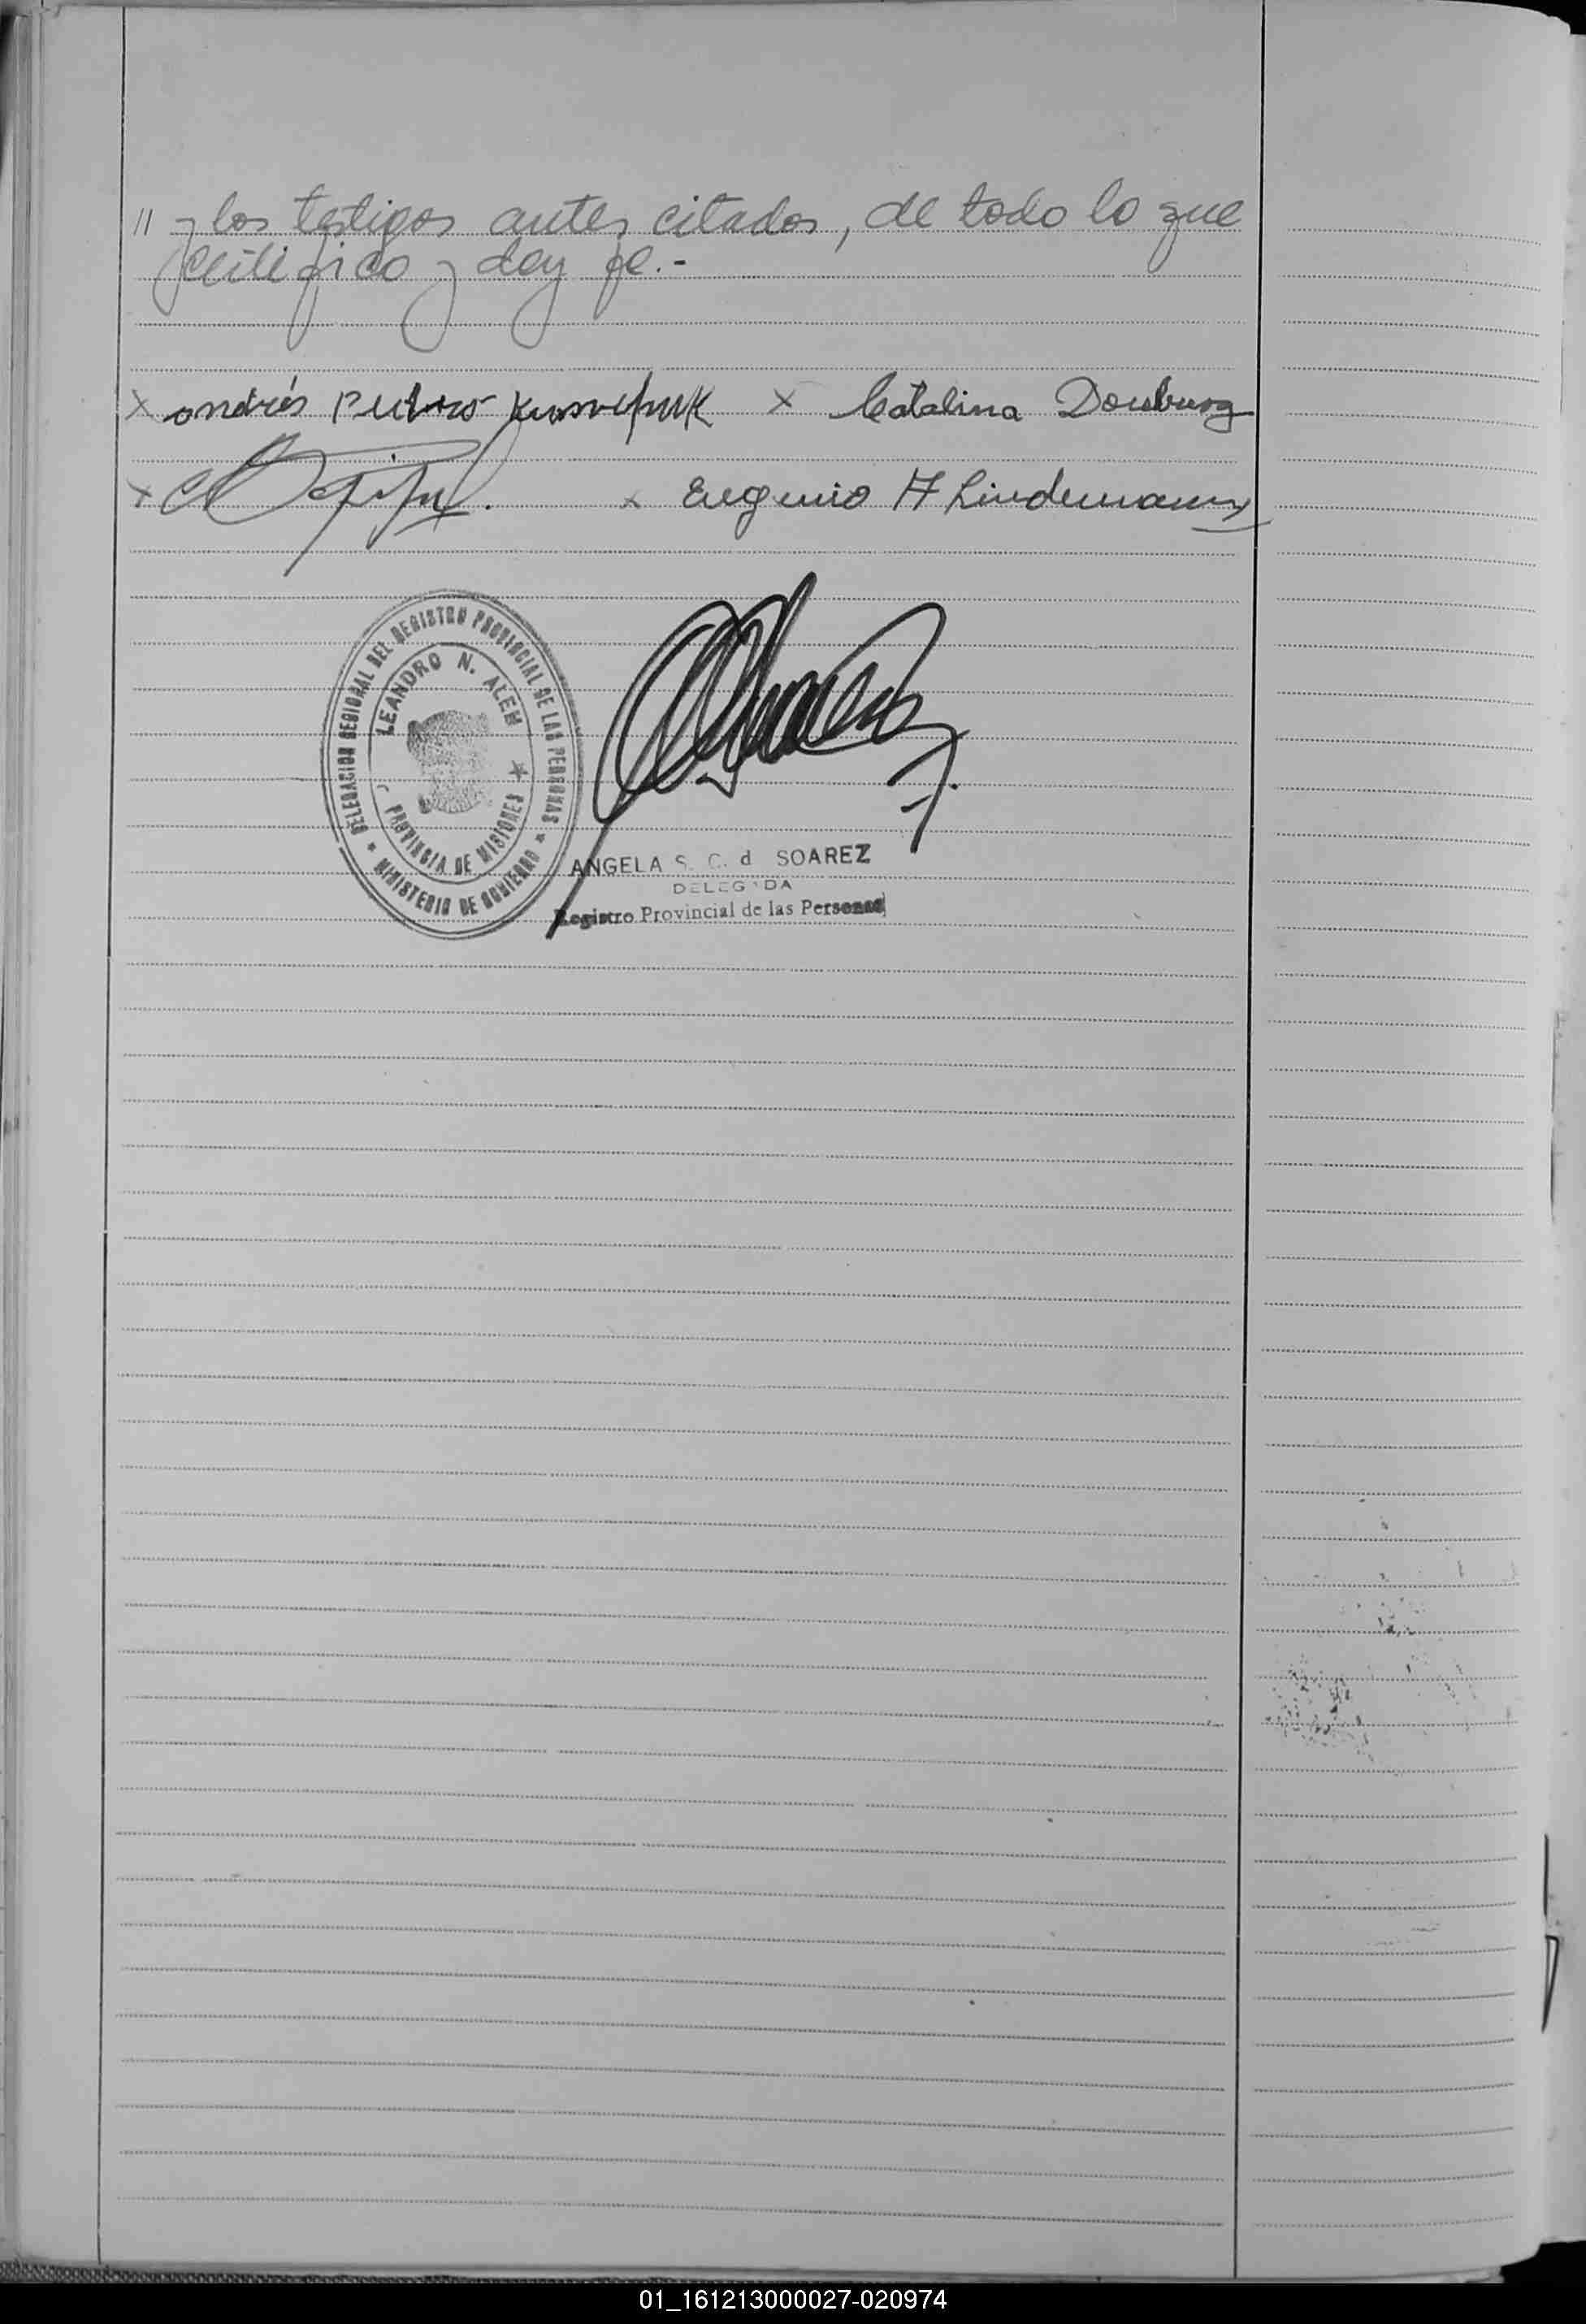 // y los testigos antes citados, de todo lo que
certifico y doy fe.-
x andrés Pedro x Catalina
x x Eugenio H Lindemann
DELEGACION REGIONAL DEL REGISTRO PROVINCIAL DE LAS PERSONAS * MINISTERIO DE GOBIERNO *
LEANDRO N. ALEM
PROVINCIA DE MISIONES
ANGELA S. C. d SOAREZ
DELEGADA
Registro Provincial de las Personas
01_161213000027-020974